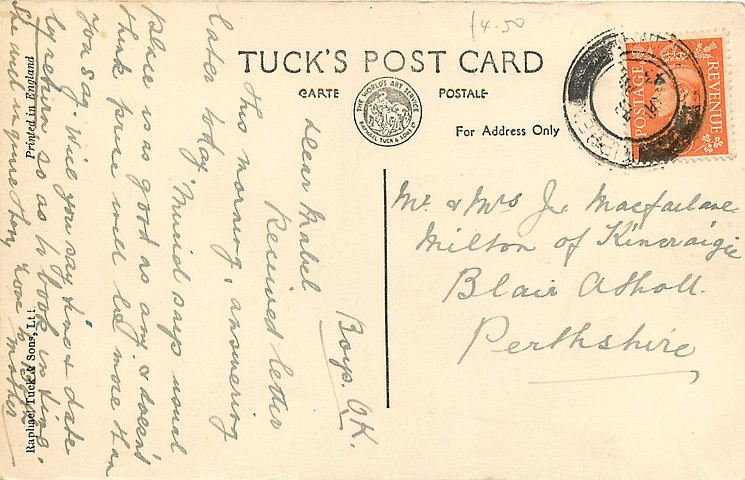 14.50
TUCK'S POST CARD
CARTE POSTALE
THE WORLD'S ART SERVICE
RAPHAEL TUCK & SONS LTD
For Address Only
POSTAGE
REVENUE
Mr & Mrs J. Macfarlane
Milton of Kincraigie
Blair Atholl
Perthshire
Boys. OK.
Dear Mabel
Received letter
this morning, answering
later today.
Muriel says usual
place is as good as any & doesn't
think price will be more than
you say. Will you say time & date
by return so as to book in time.
She will
Love to
Mother
Raphael Tuck & Sons, Ltd.
Printed in England